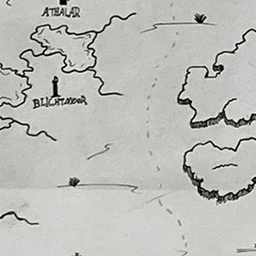 ATEALAR
BLIGHTMOOR